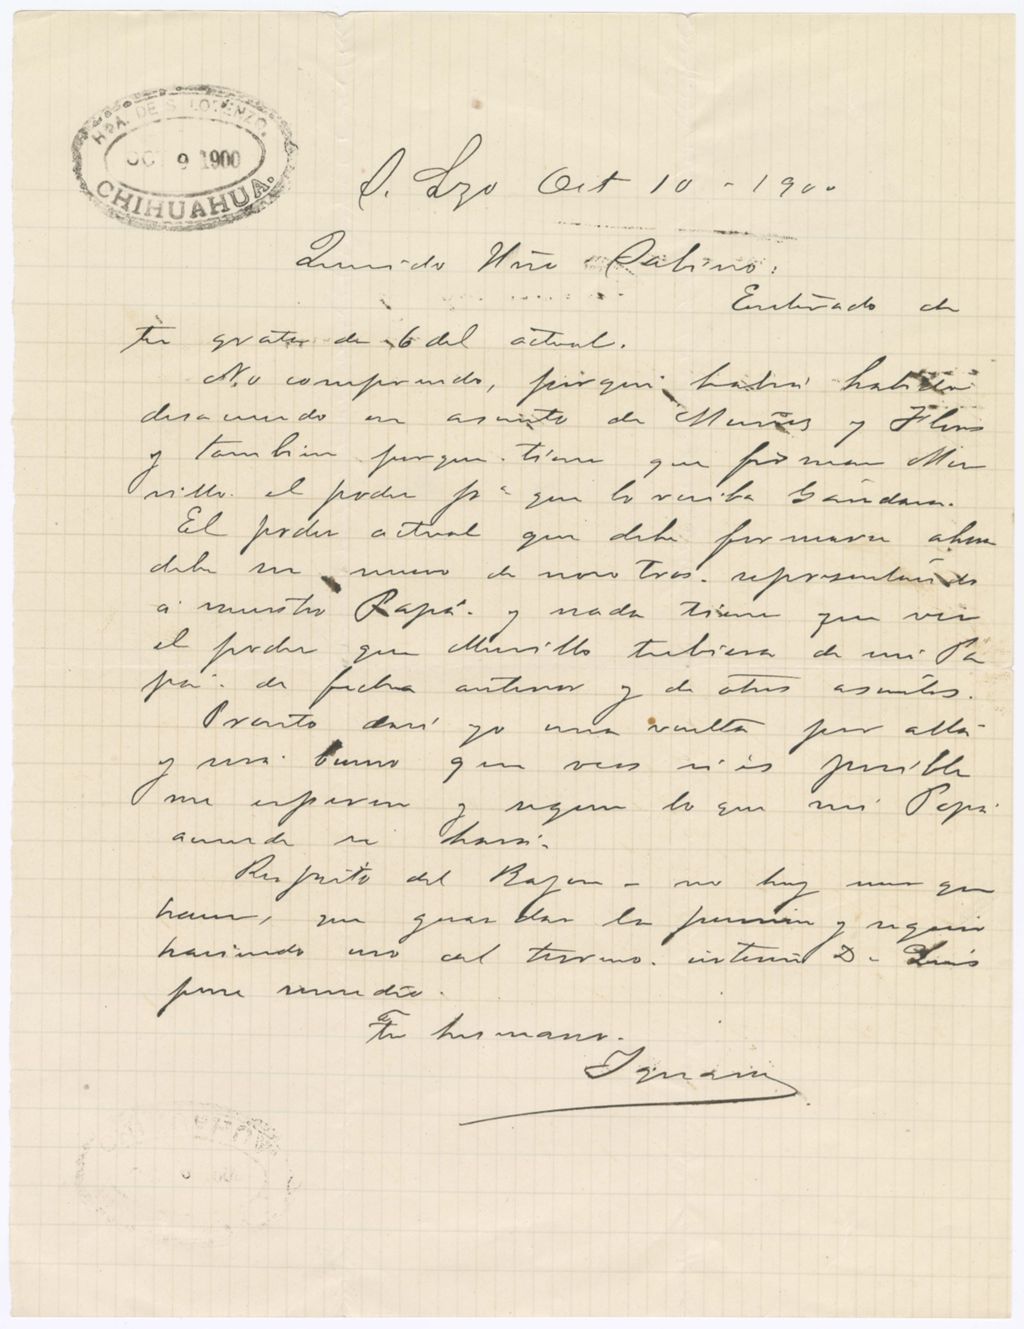 HDA. DE S. LORENZO.
OCT 9 1900
CHIHUAHUA.
S. Lzo Oct 10 - 1900
Querido Hño Sabino:
Enterado de
tu grata de 6 del actual.
No comprendo, porqué habrá habido
desacuerdo en asunto de Muñoz y Flores
y tambien porque tiene que firmar Mu
rillo el poder pª que lo reciba Gándara.
El poder actual que debe formarse ahora
debe ser nuevo de nosotros representando
a nuestro Papá. y nada tiene que ver
el poder que Murillo tubiera de mi Pa
pá. de fecha anterior y de otros asuntos.
Pronto daré yo una vuelta por allá
y será bueno que veas si es posible
me esperen y segun lo que mi Papá
acuerde se hará.
Respecto del Bajon - no hay mas que
hacer, que guardar la y seguir
haciendo uso del terreno. D. Luis
pone remedio.
Tu hermano.
Ignacio